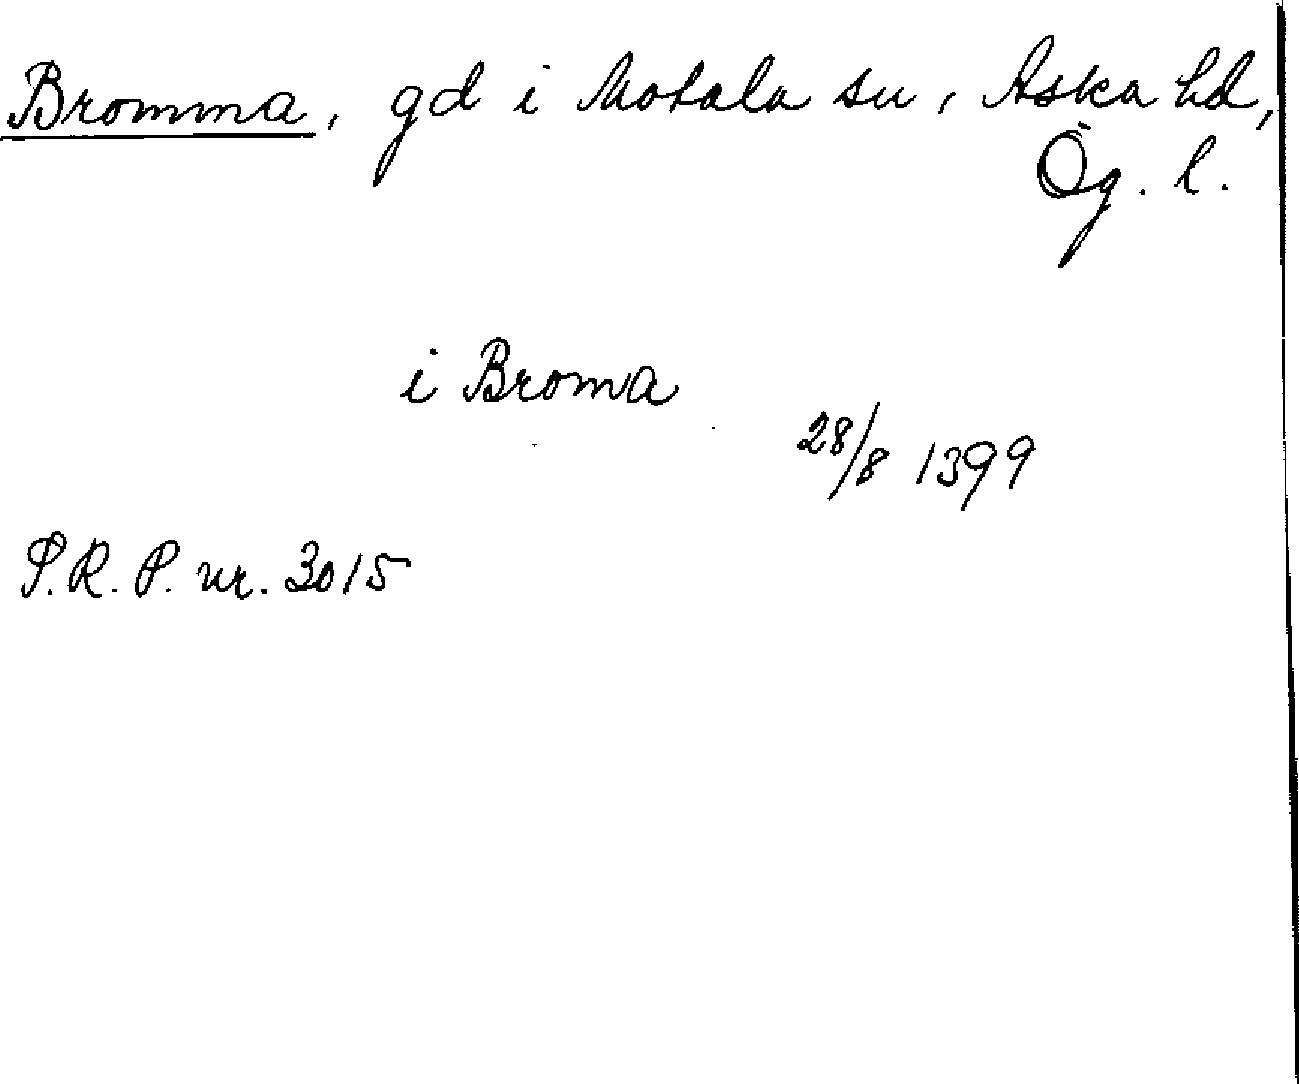 Bromma, gd i Motala sn, Aska hd,
Ög. l.
i Broma
28/8 1399
S.R.P. nr. 3015